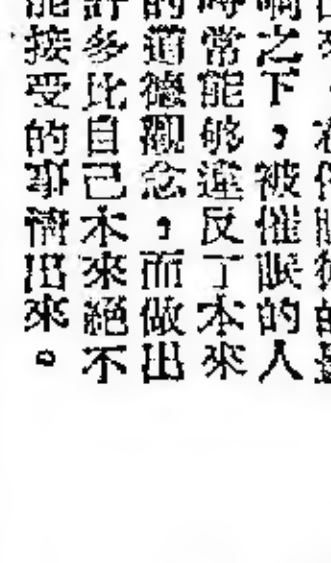 之下，被催眠的人
時常能够違反了本來
的道德觀念，而做出
許多比自己本來絕不
能接受的事情出來。